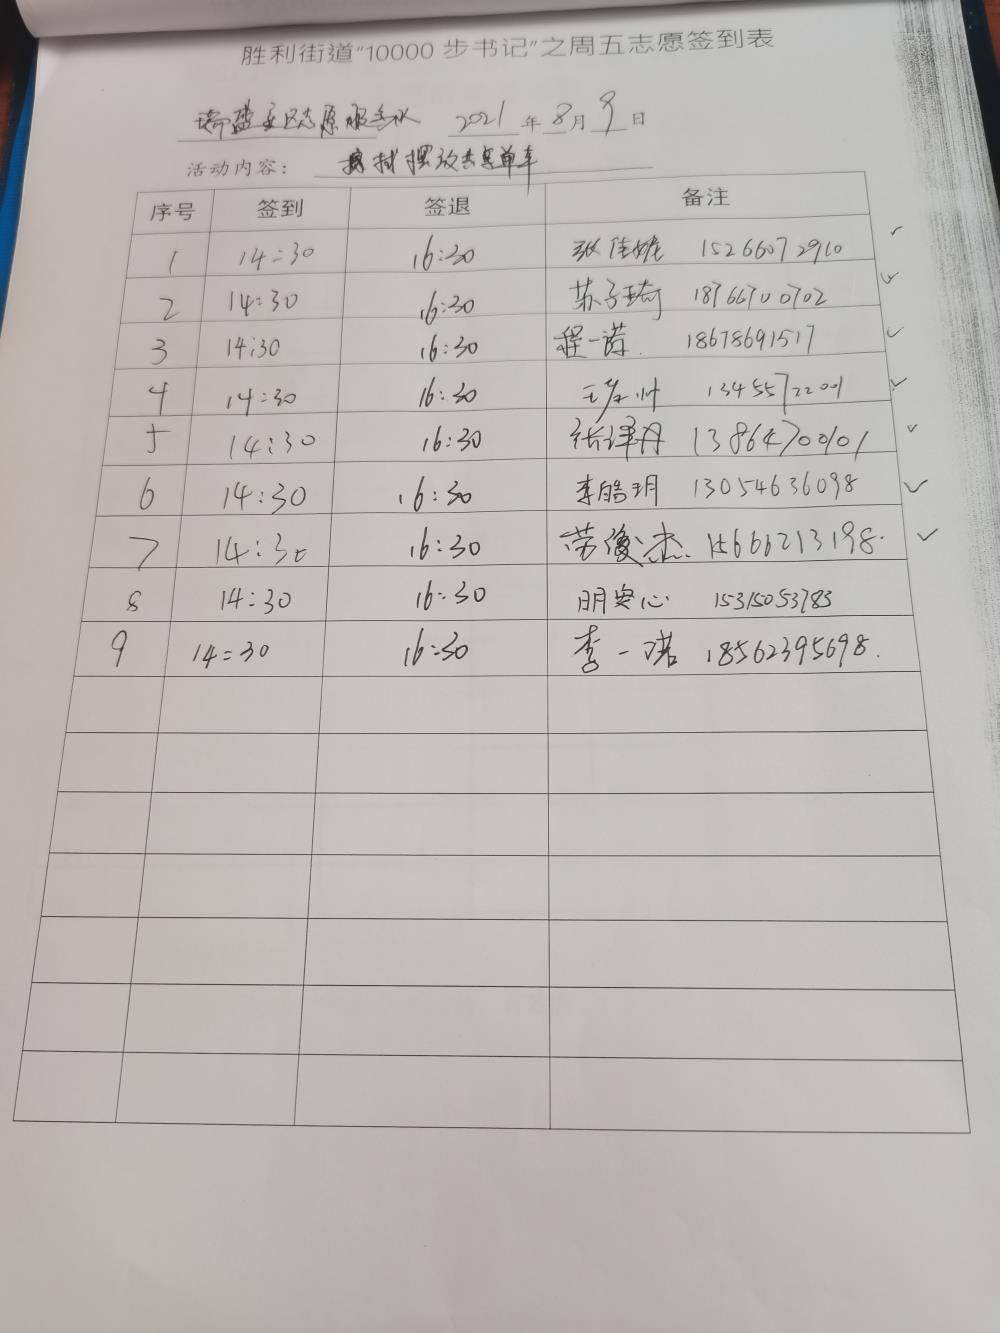 胜利街道“10000 步书记”之周五志愿签到表
瑞盛社区志愿服务队 2021 年 8 月 9 日
活动内容： 擦拭摆放共享单车
序号 签到 签退 备注
1 14:30 16:30 张佳 15266072910
2 14:30 16:30 苏子琦 18766700702
3 14:30 16:30 程一诺. 18678691517
4 14:30 16:30 13455722001
5 14:30 16:30 张译丹 13864700101
6 14:30 16:30 李皓玥 13054636098
7 14:30 16:30 劳俊杰. 15666213198.
8 14:30 16:30 明安心 15315053783
9 14:30 16:30 李一诺 18562395698.